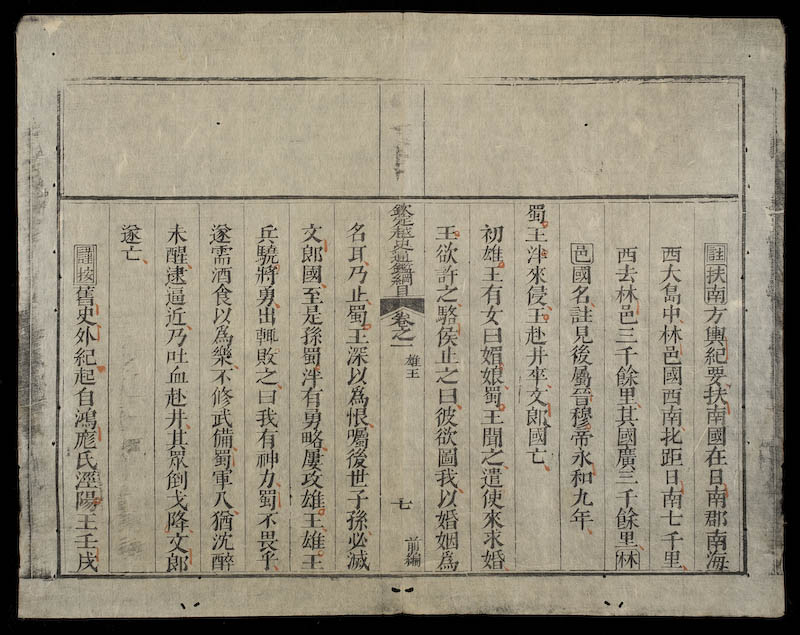 註扶南方輿紀要扶南國在日南郡南海
西大島中林邑國西南北距日南七千里
西去林邑三千餘里其國廣三千餘里林
邑國名註見後屬晉穆帝永和九年
蜀王泮來侵王赴井卒文郎國亡
初雄王有女曰媚娘蜀王聞之遣使來求婚
王欲許之駱侯止之曰彼欲圖我以婚姻爲
欽定越史通鑑綱目 卷之一 雄王 七 前編
名耳乃止蜀王深以爲恨囑後世子孫必滅
文郎國至是孫蜀泮有勇略屢攻雄王雄王
兵驍將勇出輒敗之曰我有神力蜀不畏乎
遂需酒食以爲樂不修武備蜀軍入猶沈醉
未醒逮逼近乃吐血赴井其眾倒戈降文郎
遂亡
謹按舊史外紀起自鴻厖氏涇陽王壬戌